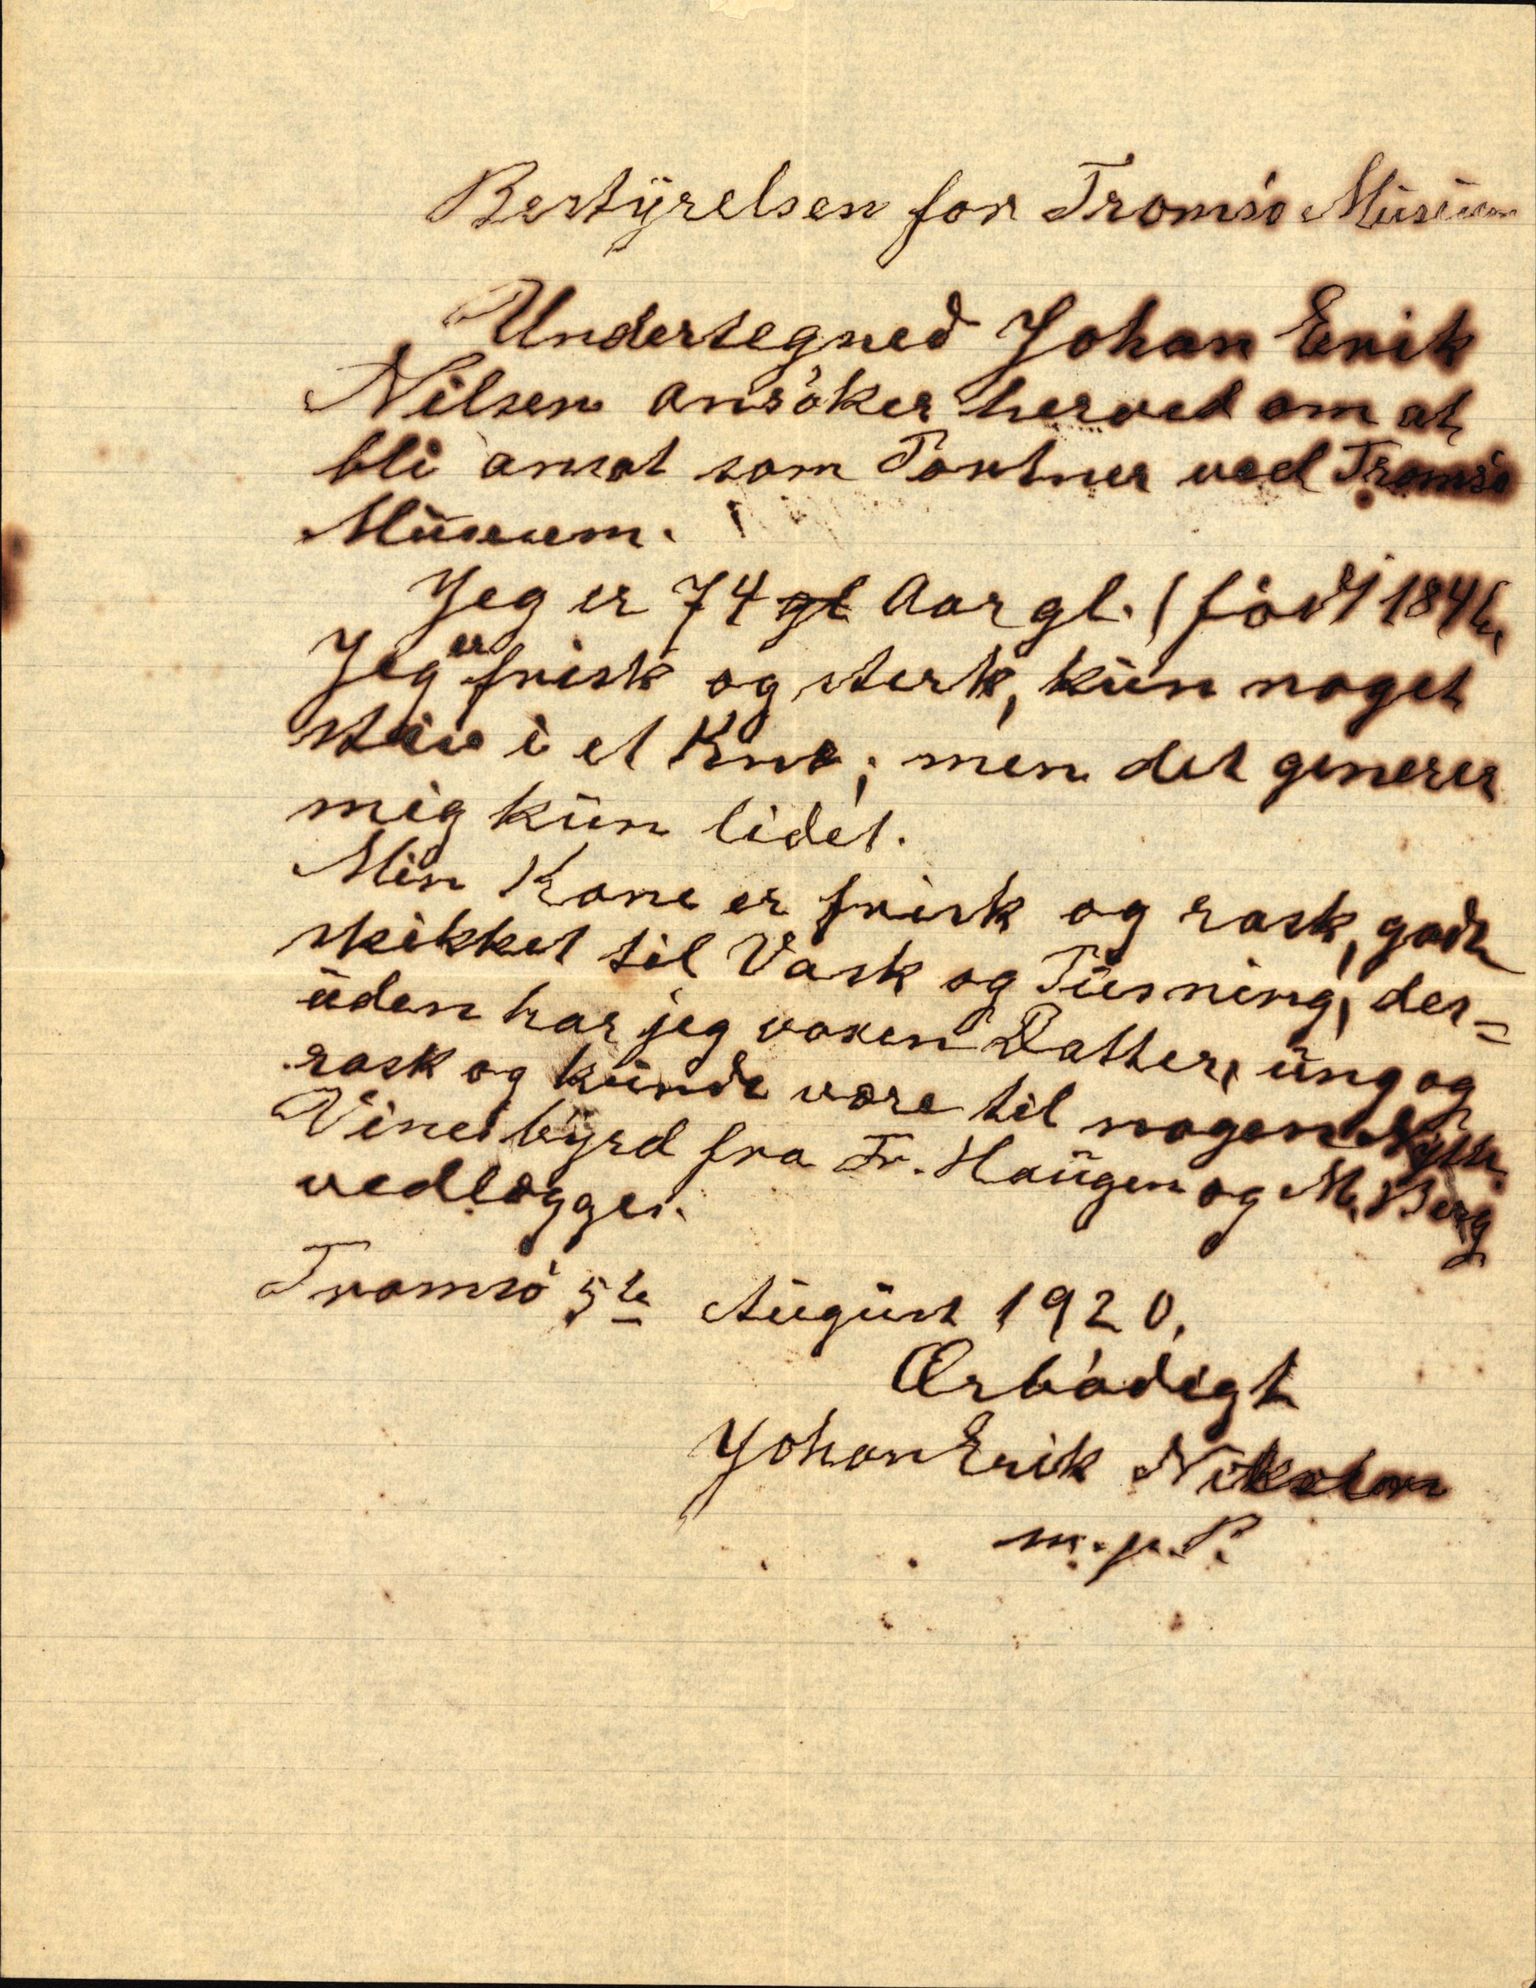 Bestyrelsen for Tromsø Museum
Undertegned Johan Erik
Nilsen ansøker herved om at
bli ansat som Portner ved Tromsø
Museum.
Jeg er 74 gl Aar gl. (født 1846)
Jeg er frisk og sterk, kun noget
stiv i et Knæ; men det generer
mig kun lidet.
Min Kone er frisk og rask, godt
skikket til Vask og Pusning, des=
uden har jeg voxen Datter, ung og
rask og kunde være til nogen Nytte
Vinesbyrd fra Fr. Haugen og M. Berg
vedlægges.
Tromsø 5te August 1920.
Ærbødigt
Johan Erik
m.p.P.